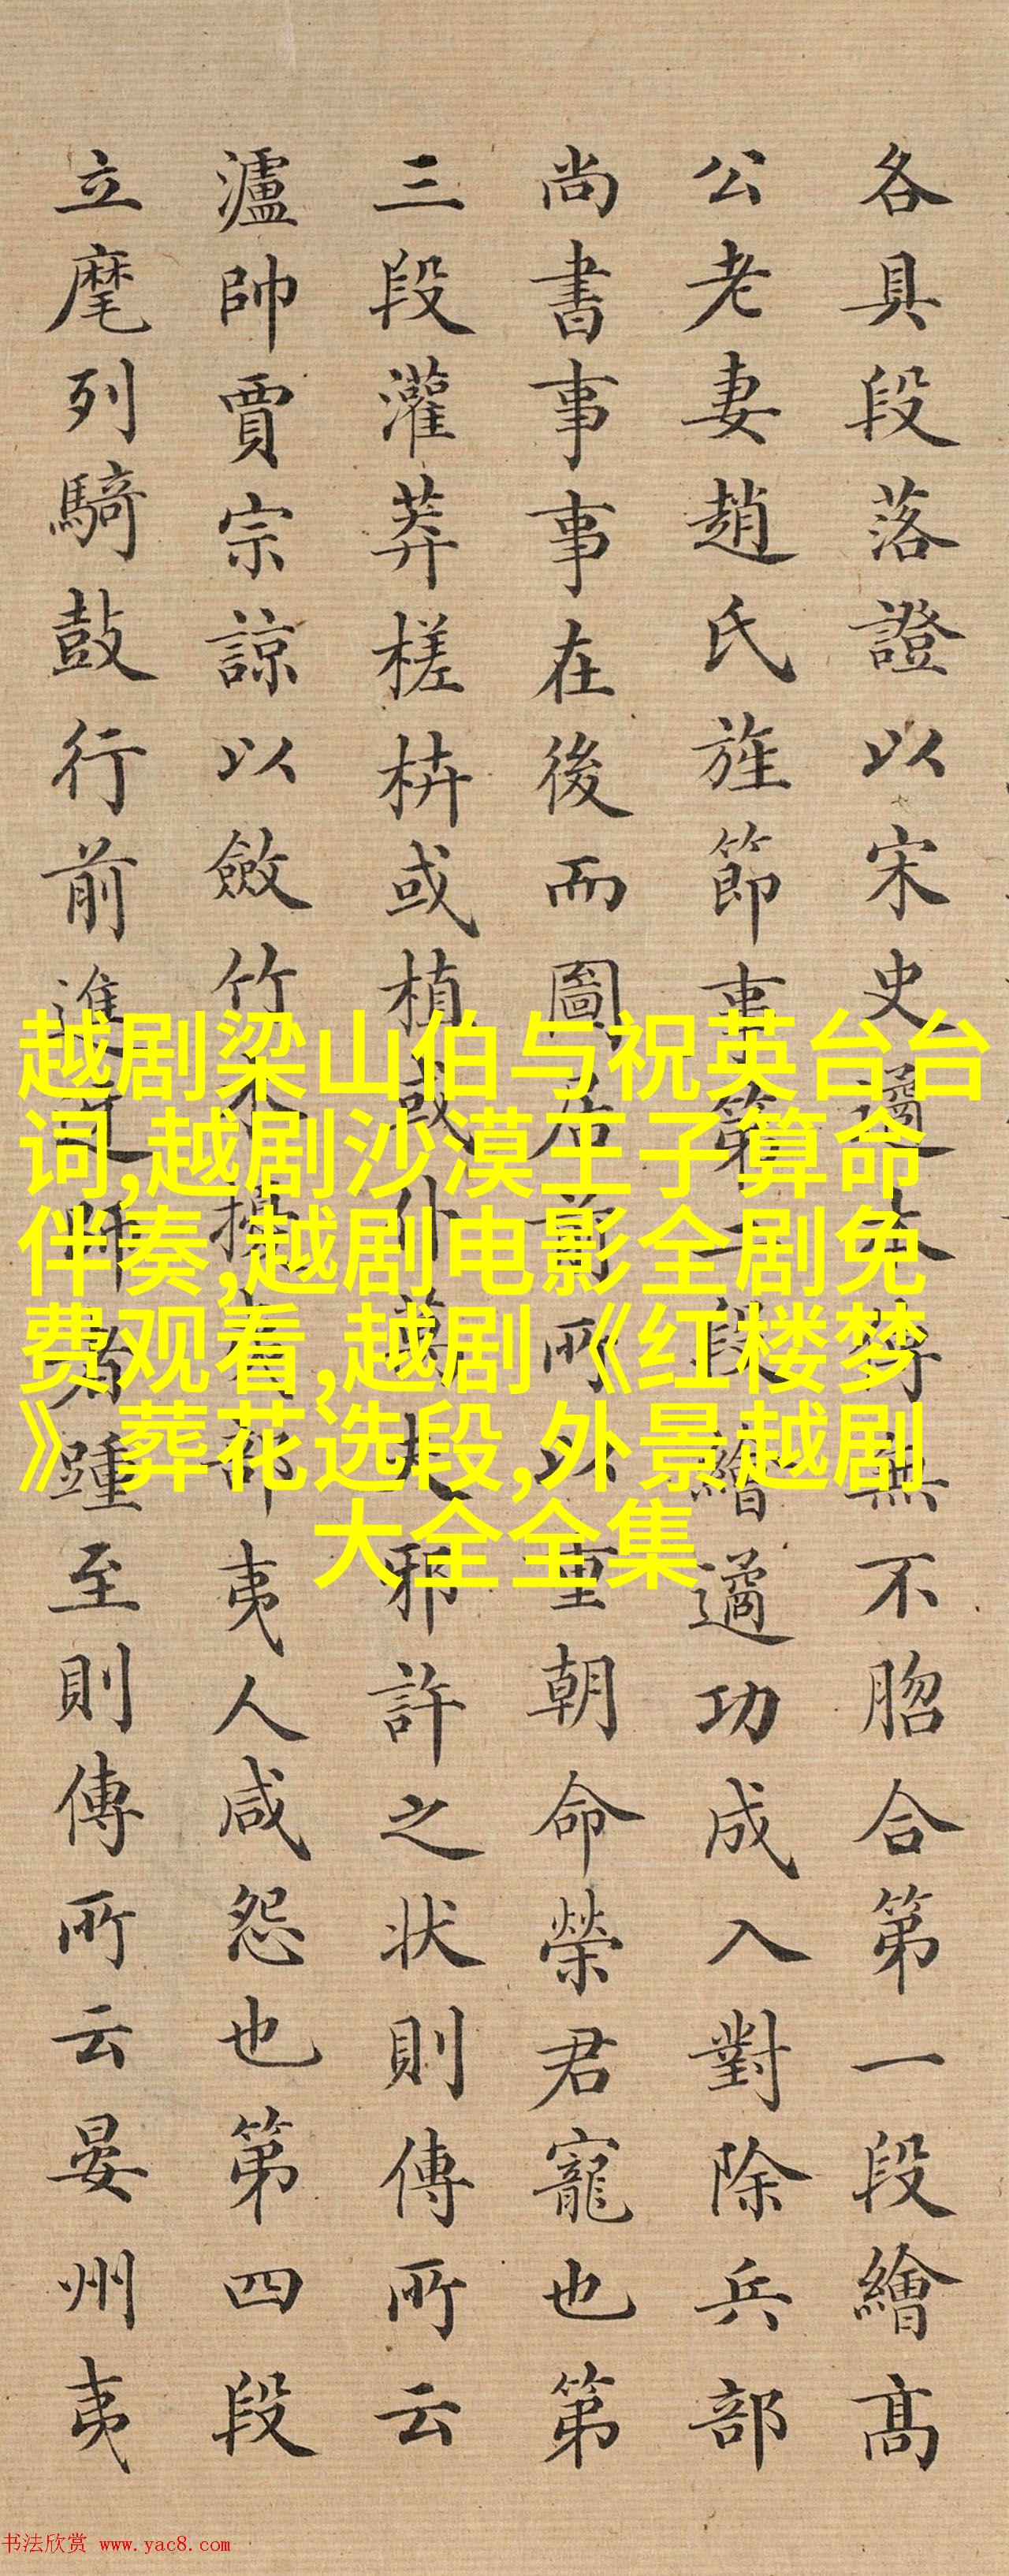 各具段落證以宋史遹本傳無不脗合第一段繪高
公老妻趙氏旌節事第二段繪遹功成入對除兵部
尚書事事在後而圖居前所以重朝命榮君寵也第
三段灌莽槎枿或植或仆夫邪許之状則傳所云
瀘帥賈宗諒以斂竹木擾夷部夷人咸怨也第四段
立麾列騎鼓行前進踵至則傳所云晏州夷
越剧梁山伯与祝英台台
词,越剧沙漠王子算命
伴奏,越剧电影全剧免
费观看,越剧《红楼梦
》葬花选段,外景越剧
大全全集
书法欣赏 www.yac8.com